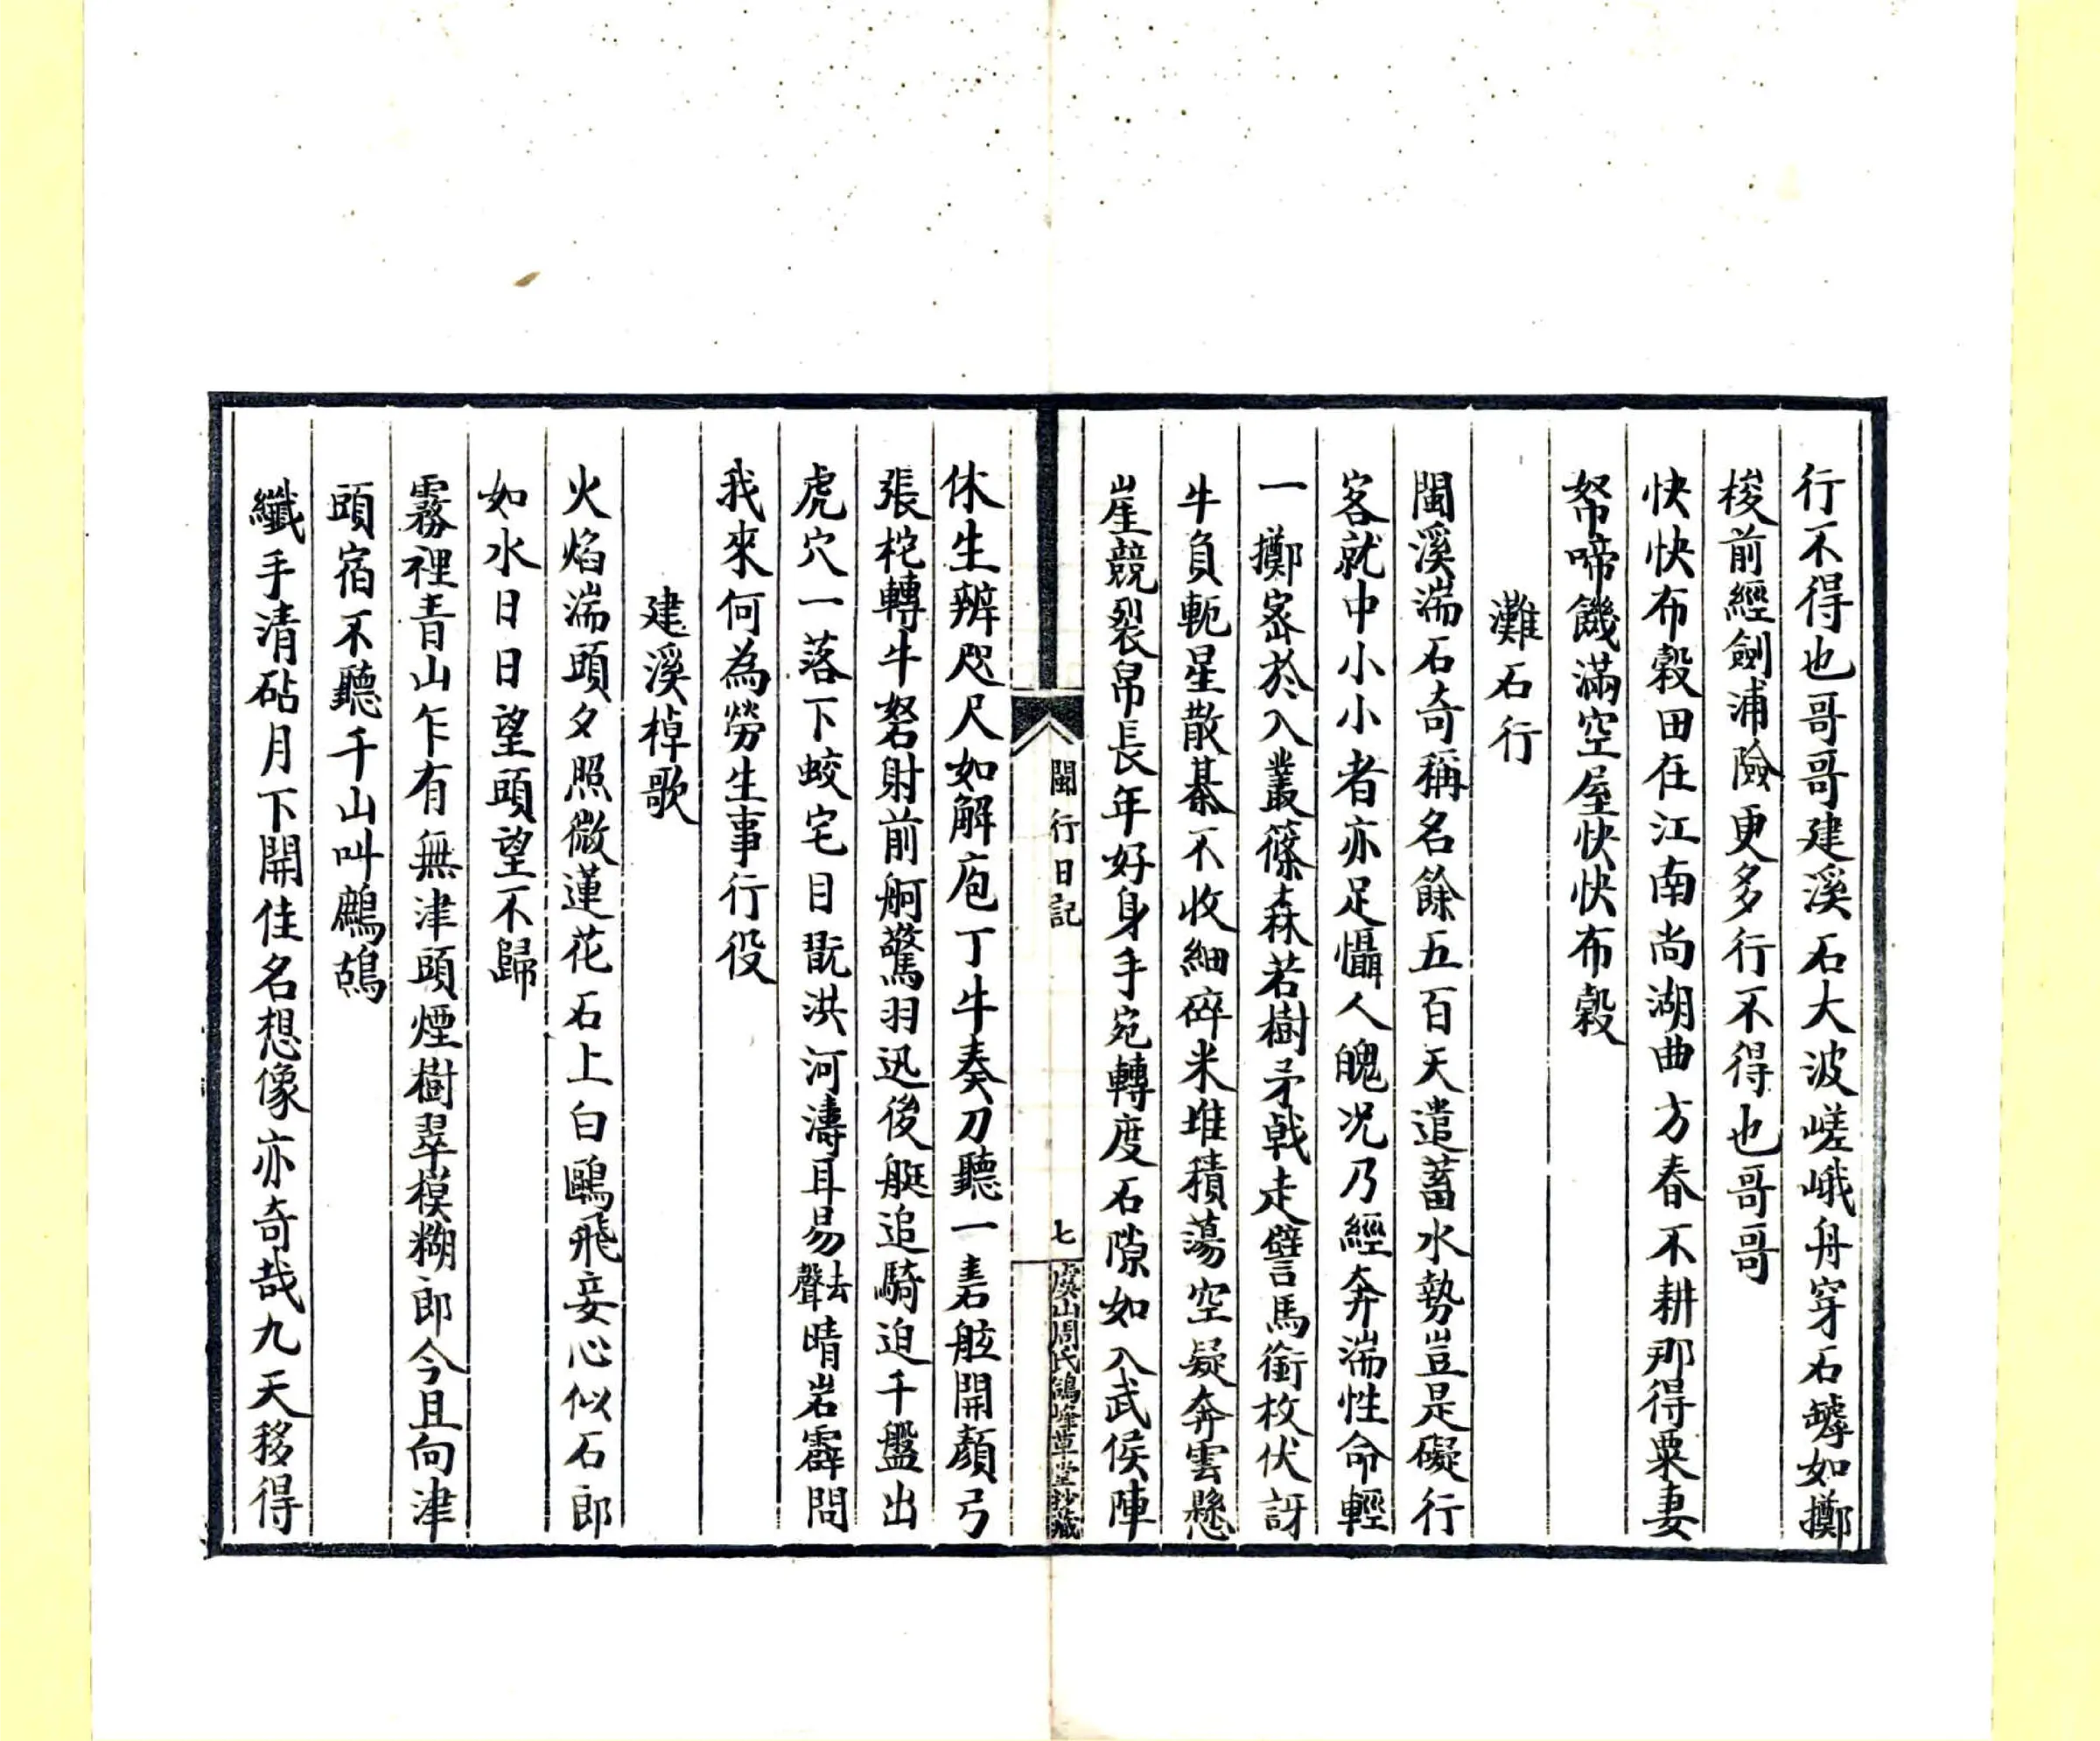 行不得也哥哥建溪石大波嵯峨舟穿石罅如擲
梭前經劍浦險更多行不得也哥哥
快快布穀田在江南尚湖曲方春不耕那得粟妻
帑啼饑滿空屋快快布穀
灘石行
閩溪湍石奇稱名餘五百天遣蓄水勢豈是礙行
客就中小小者亦足懾人魄况乃經奔湍性命輕
一擲密於入叢篠森若樹矛戟走譬馬銜枚伏訝
牛負軛星散棊不收細碎米堆積蕩空疑奔雲懸
崖競裂帛長年好身手宛轉度石隙如入武侯陣
閩行日記
七
虞山周氏鴿峰草堂抄藏
休生辨咫尺如解庖丁牛奏刀聽一砉舷開顏弓
張柁轉牛弩射前舸驚羽迅後艇追騎迫千盤出
虎穴一落下蛟宅目翫洪河濤耳易去聲晴岩霹問
我來何為勞生事行役
建溪棹歌
火焰湍頭夕照微蓮花石上白鷗飛妾心似石郎
如水日日望頭望不歸
霧裡青山乍有無津頭煙樹翠模糊郎今且向津
頭宿不聽千山叫鷓鴣
纖手清砧月下開佳名想像亦奇哉九天移得